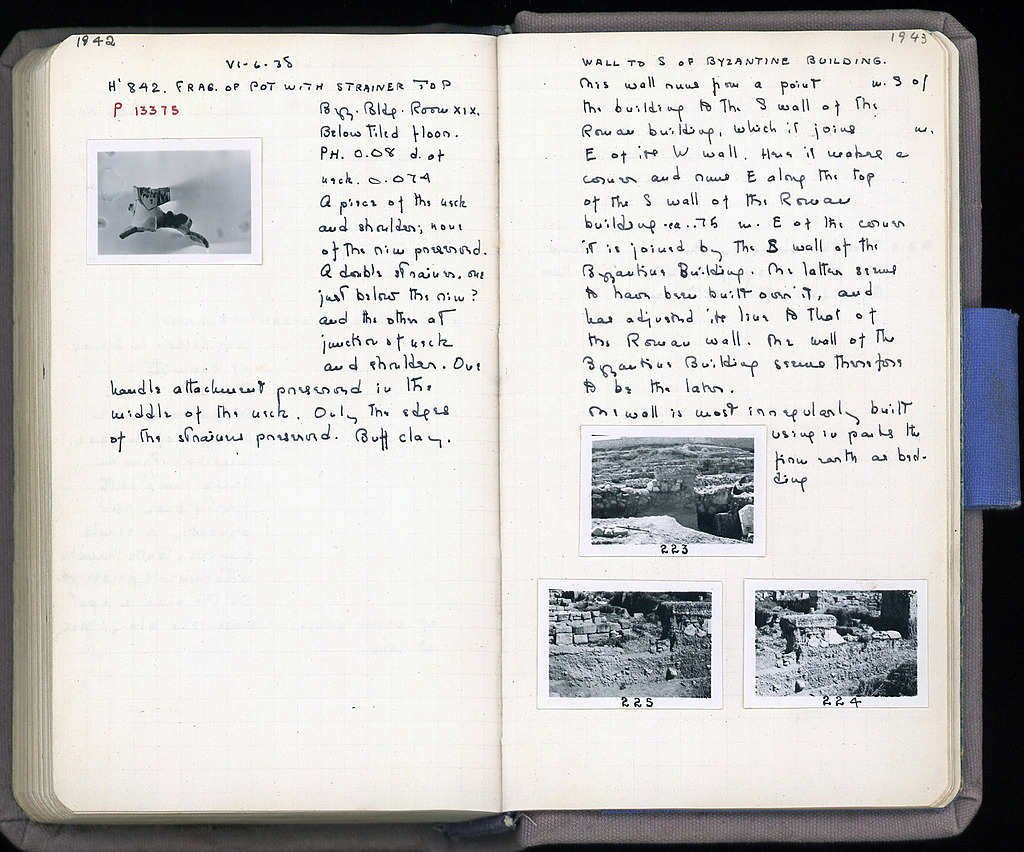 1942
VI-6-38
H' 842. FRAG. OF POT WITH STRAINER TOP
P 13375
Byz. Bldg. Room XIX.
Below tiled floor.
PH. 0.08 d. of
neck. 0.074
A piece of the neck
and shoulder; none
of the rim preserved.
A double strainer, one
just below the rim?
and the other at
junction of neck
and shoulder. One
handle attachment preserved in the
middle of the neck. Only the edges
of the strainers preserved. Buff clay.
1943
WALL TO S OF BYZANTINE BUILDING.
This wall runs from a point m. S of
the building to the S wall of the
Roman building, which it joins m.
E of its W wall. Here it makes a
corner and runs E along the top
of the S wall of the Roman
building. ca. .75 m. E of the corner
it is joined by the S wall of the
Byzantine Building. The latter seems
to have been built over it, and
has adjusted its line to that of
the Roman wall. The wall of the
Byzantine Building seems therefore
to be the later.
The wall is most irregularly built
using in parts the
firm earth as bed-
ding
223
225
224